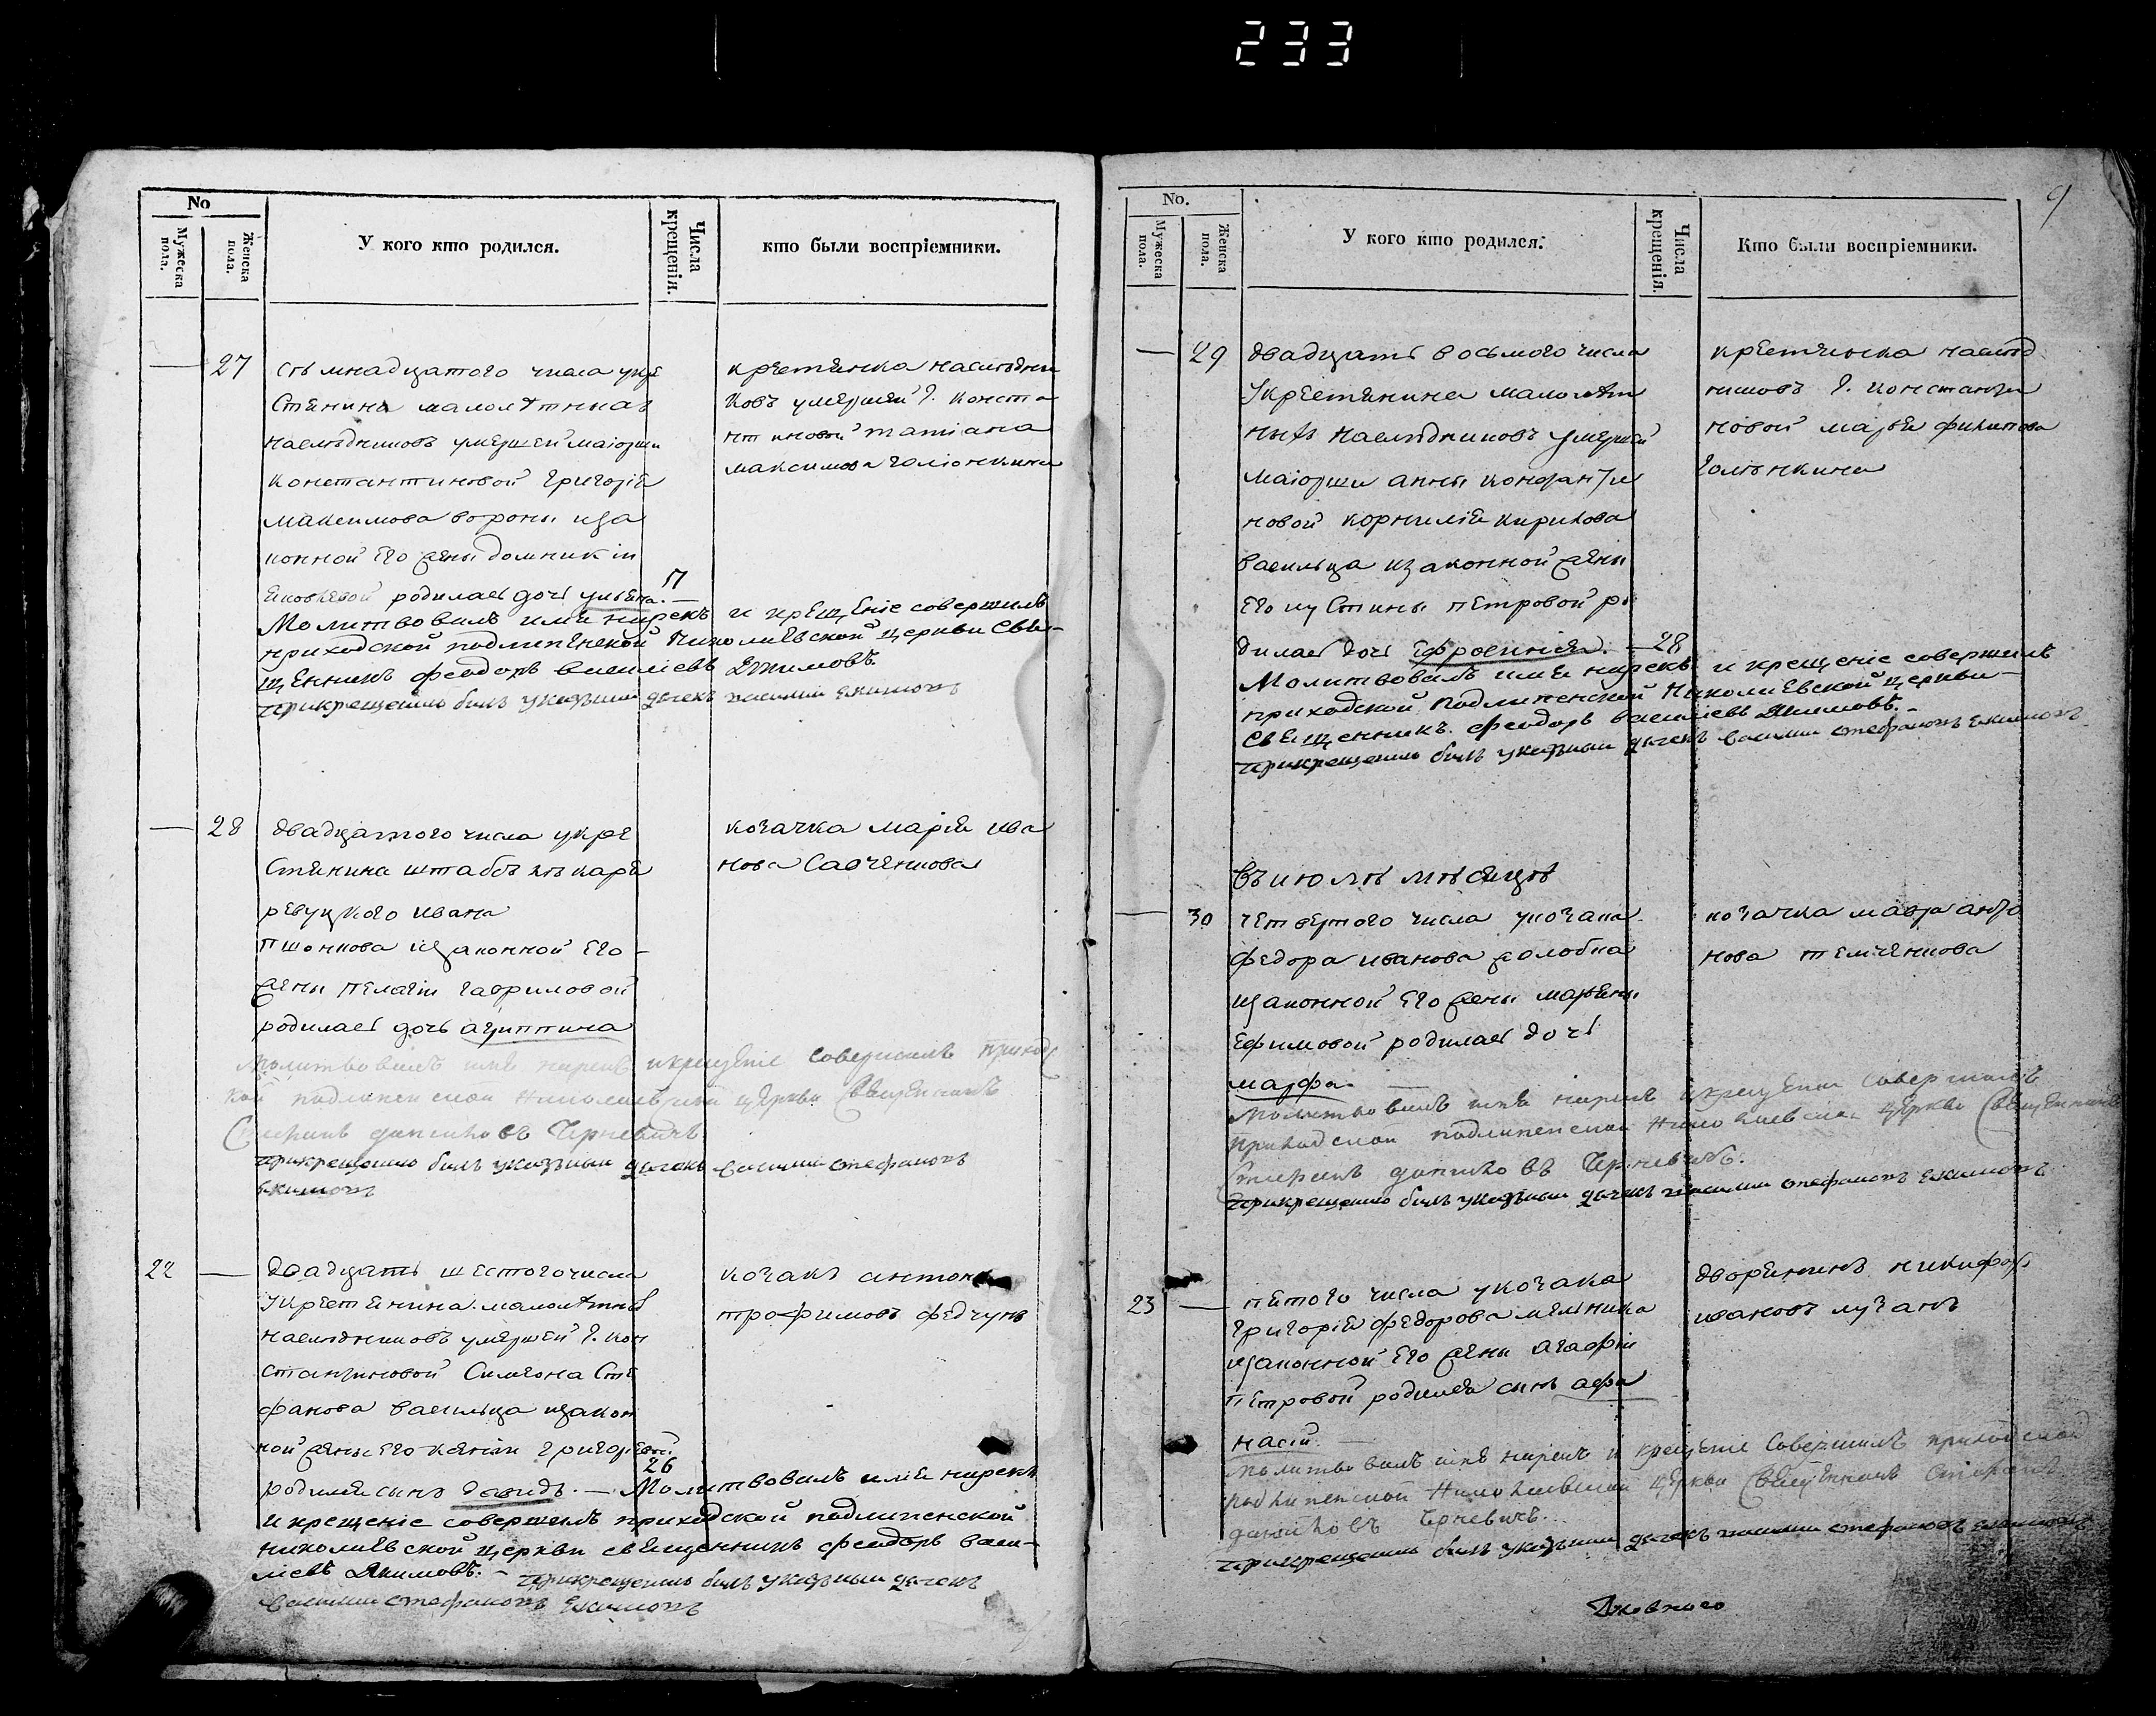 233
No
Мужеска пола.
Женска пола.
У кого кто родился.
Числа крещенія.
кто были воспріемники.
— 27
сѣмнадцатого числа укре
стянина малолѣтныхъ
наслѣдниковъ умершей маіорши
константиновой григорія
максимова вороны иза
конной его жены домникіи
яковлевой родилась дочь ульяна.
17
Молитвовалъ имя нарекъ и крещеніе совершилъ
приходской подлипенской николаевской церкви свя-
щенникъ феодоръ василіевъ Якимовъ.
при крещеніи былъ указный дячекъ василій екимовъ
крестянка наслѣдни
ковъ умершей г. конста
нтиновой татіана
максимова
— 28
двадцатого числа укре
стянина штабъ лѣкаря
ревуцкого ивана
пшонкова изаконной его
жены пелагіи гавриловой
родилась дочь агриппина
Молитвовалъ имя нарекъ икрещеніе совершилъ приходс
кой подлипенской Николаевской церкви священникъ
Стефанъ даниловъ Черневичъ
при крещеніи былъ указный дячекъ василий стефановъ
екимовъ
козачка марія ива
нова савченкова
22 —
двадцать шестого числа
укрестянина малолѣтныхъ
наслѣдниковъ умершей г. кон
стантиновой Симеона Сте
фанова васильца изакон
ной жены его ксеніи григорьевой
26
родился сынъ давидъ. — Молитвовалъ имя нарекъ
и крещеніе совершилъ приходской подлипенской
николаевской церкви священникъ феодоръ васи-
ліевъ Якимовъ. — при крещеніи былъ указный дячекъ
василий стефановъ екимовъ
козакъ антонъ
трофимовъ федчунъ
9
No.
Мужеска пола.
Женска пола.
У кого кто родился.
Числа крещенія.
Кто были воспріемники.
— 29
двадцать восьмого числа
укрестянина малолѣт
ныхъ наслѣдниковъ умершей
маіорши анны константи
новой корнилія кирилова
васильца изаконной жены
его иустины петровой ро
дилась дочь ефросинія. — 28
Молитвовалъ имя нарекъ и крещеніе совершилъ
приходской подлипенской николаевской церкви
священникъ феодоръ василіевъ Якимовъ. —
при крещеніи былъ указный дячекъ василий стефановъ екимовъ
крестянка наслѣд
никовъ г. константи
новой марья филипова
въ июлѣ мѣсяцѣ
— 30
четвертого числа укозака
федора иванова
изаконной его жены марьяны
ефимовой родилась дочь
марфа. —
Молитвовалъ имя нарекъ икрещеніе совершилъ
приходской подлипенской николаевской церкви священникъ
Стефанъ даниловъ Черневичъ.
при крещеніи былъ указный дячекъ василий стефановъ екимовъ
козачка мавра анто
нова темченкова
23 —
пятого числа укозака
григорія федорова мельника
изаконной его жены агафіи
петровой родился сынъ афа
насій.
Молитвовалъ имя нарекъ и крещеніе совершилъ приходской
подлипенской николаевской церкви священникъ Стефанъ
даниловъ Черневичъ.
при крещеніи былъ указный дячекъ василий стефановъ екимовъ
дворянинъ никифоръ
ивановъ лузанъ